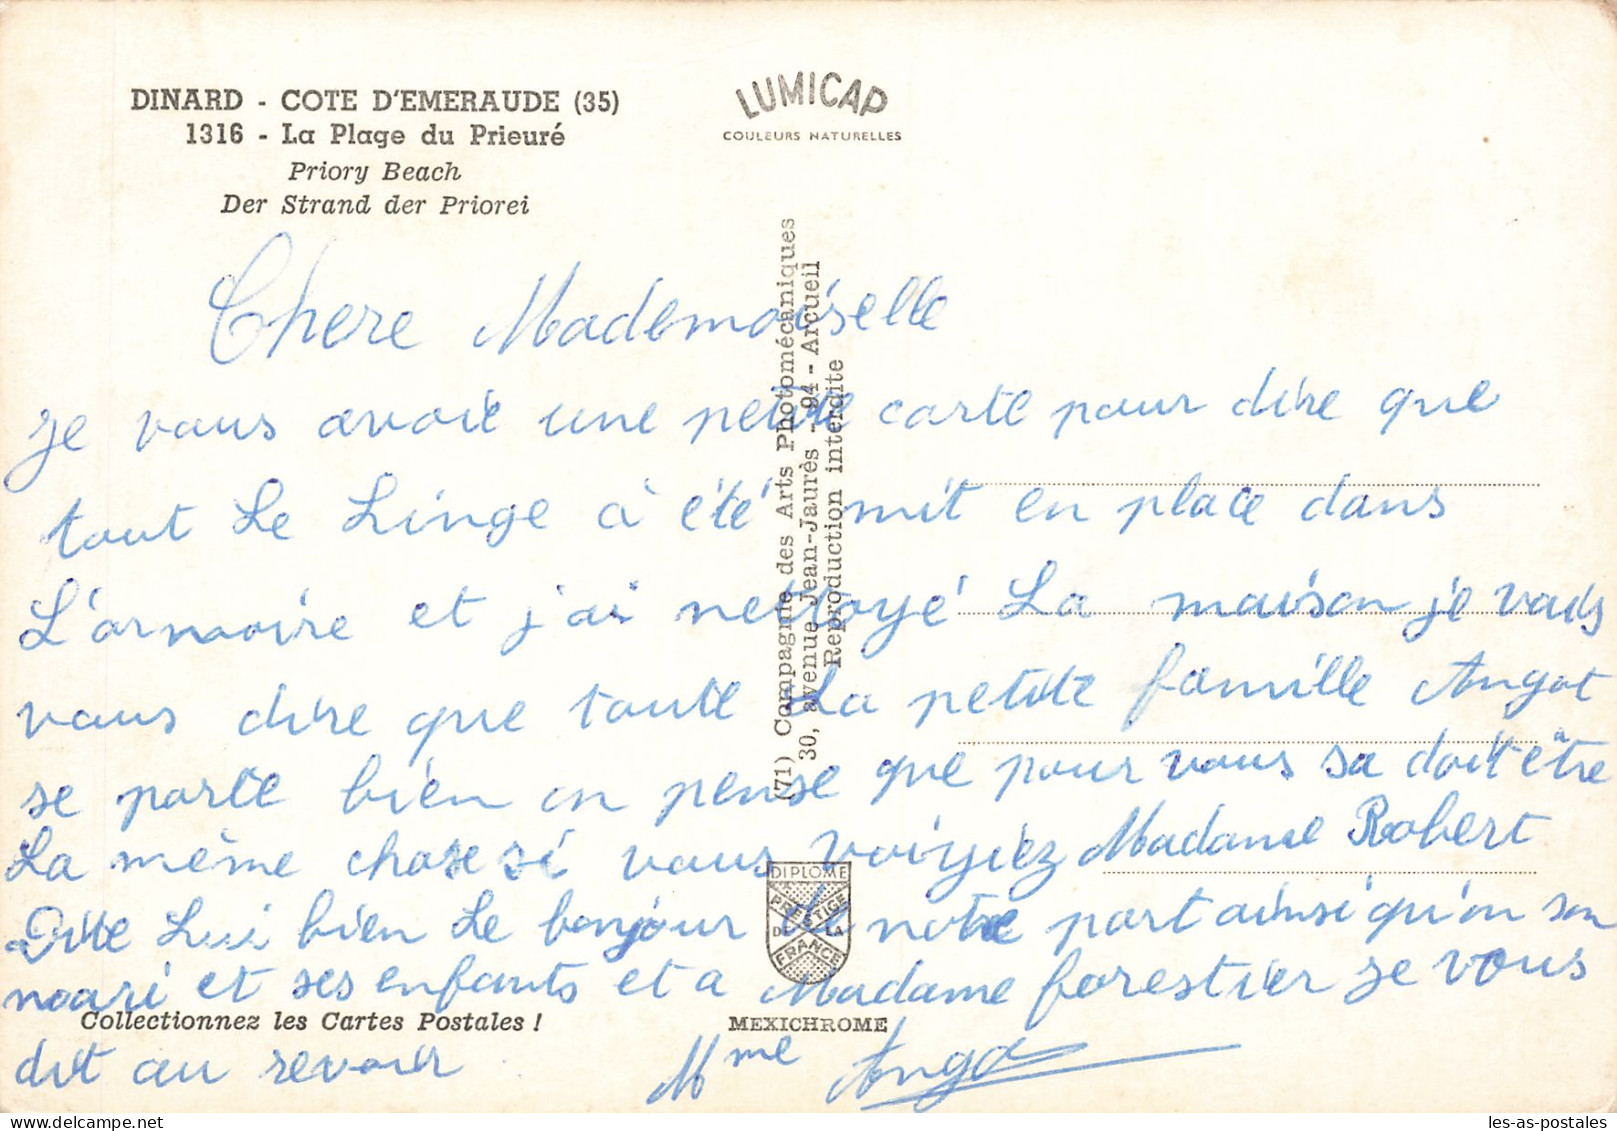 DINARD - COTE D'EMERAUDE (35)
1316 - La Plage du Prieuré
Priory Beach
Der Strand der Priorei
LUMICAP
COULEURS NATURELLES
Chere Mademoiselle
je vous avoie une petite carte pour dire que
tout Le Linge à été mit en place dans
L'armoire et j'ai nettoyé La maison je vous
vous dire que toute La petite famille Angot
se porte bien on pense que pour vous sa doit être
La même chose si vous voiyiez Madame Robert
Dite Lui bien Le bonjour de notre part ainsi qu'on son
mari et ses enfants et a Madame forestier je vous
dit au revoir Mme Angot
(71) Compagnie des Arts Photomécaniques
30, avenue Jean-Jaurès - 94 - Arcueil
Reproduction interdite
DIPLOME
PRESTIGE
DE LA
FRANCE
Collectionnez les Cartes Postales !
MEXICHROME
les-as-postales